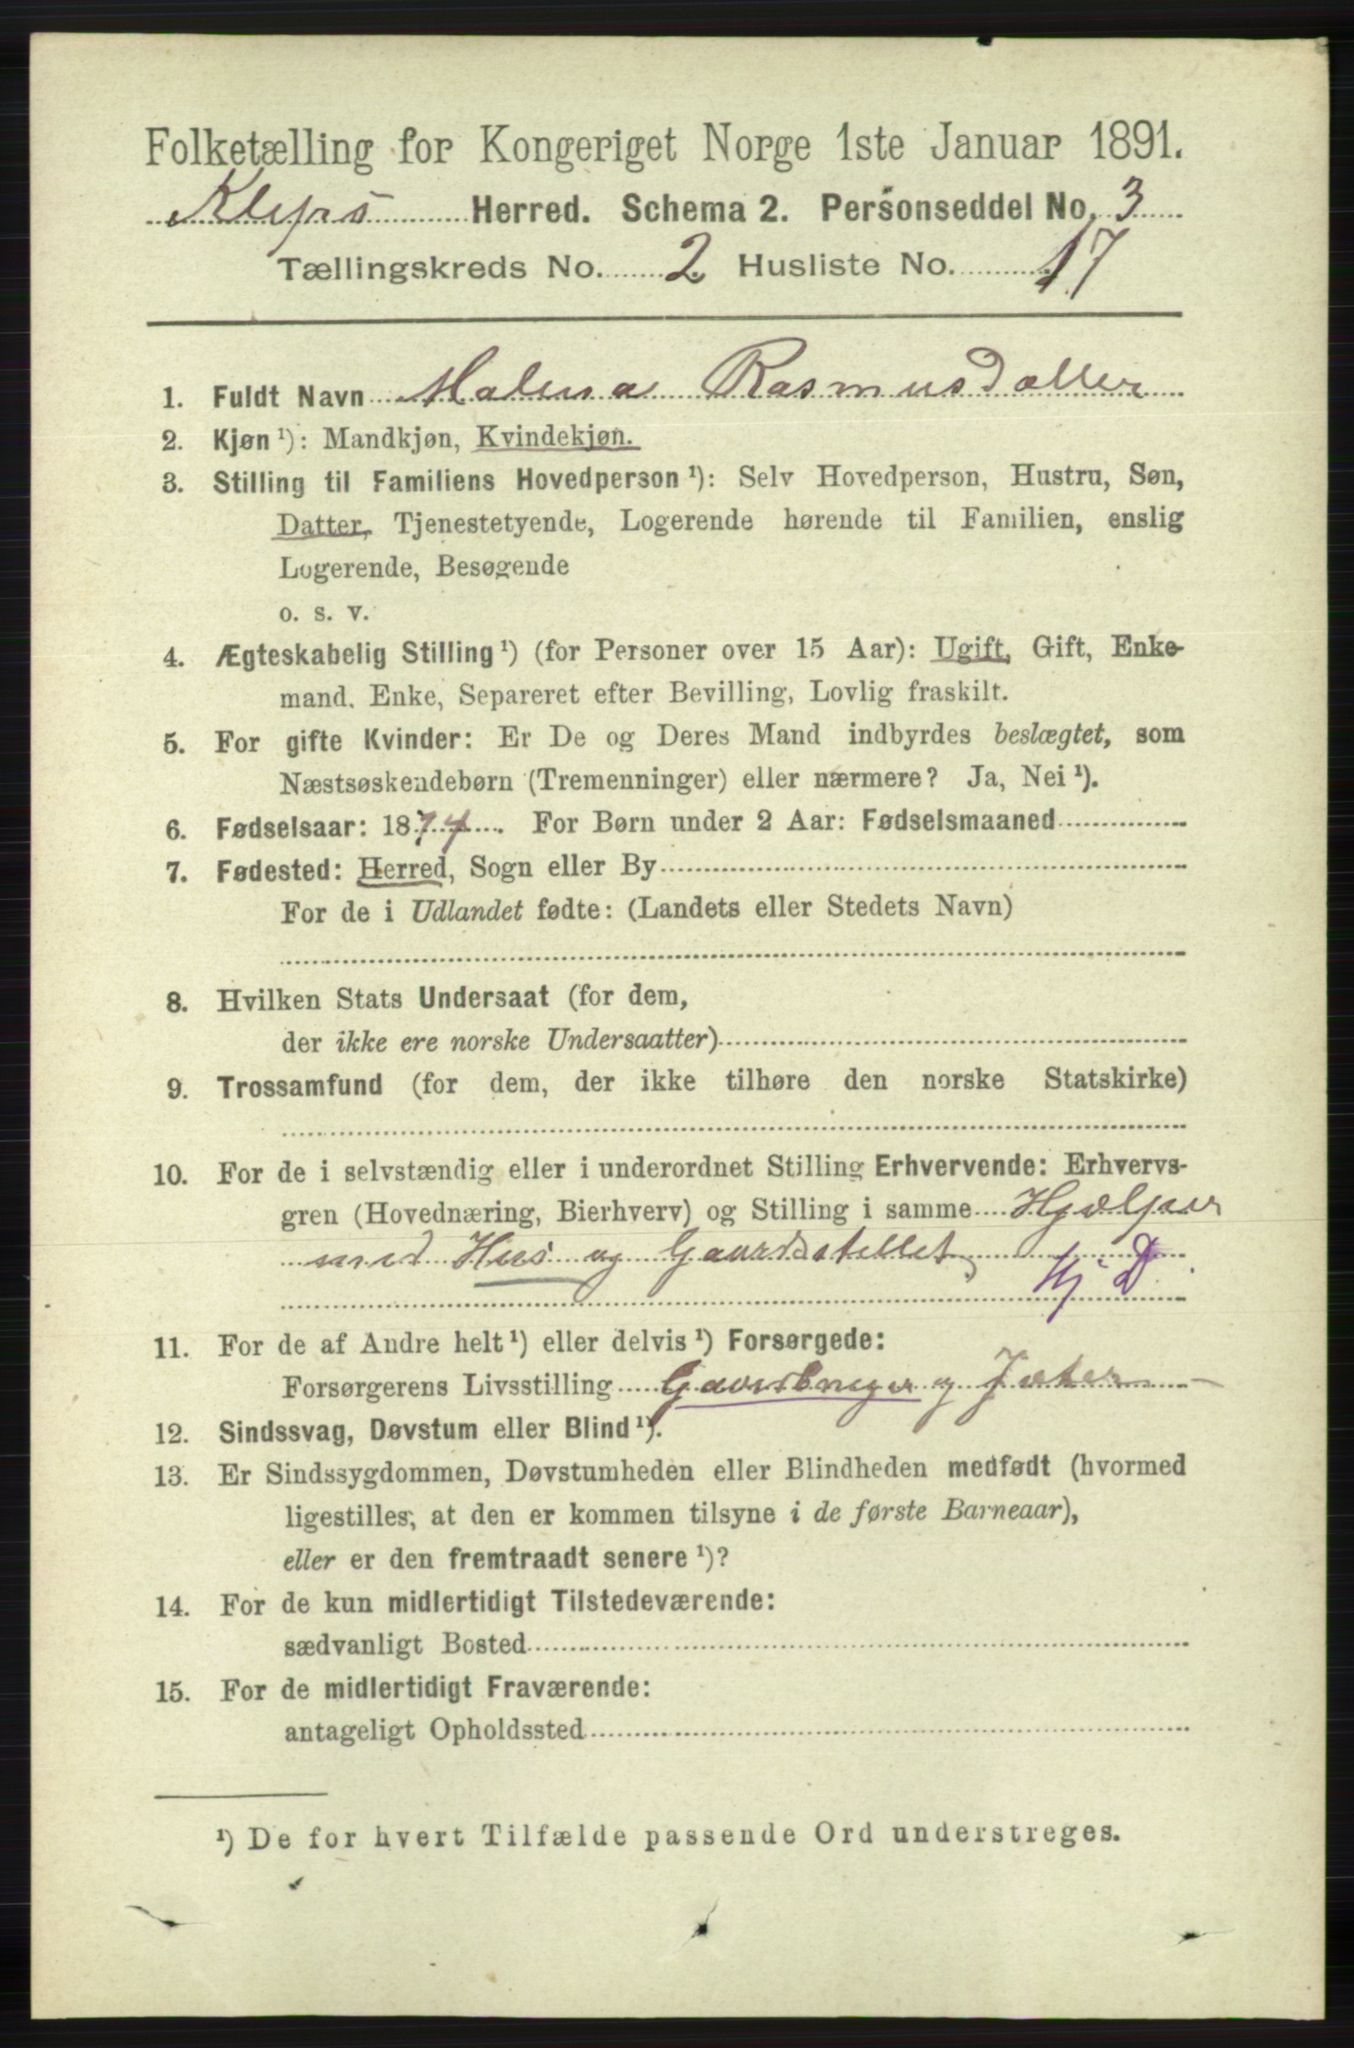 Folketælling for Kongeriget Norge 1ste Januar 1891.
Kleps Herred. Schema 2. Personseddel No. 3
Tællingskreds No. 2 Husliste No. 17
1. Fuldt Navn Malena Rasmusdatter
2. Kjøn ¹): Mandkjøn, Kvindekjøn.
3. Stilling til Familiens Hovedperson ¹): Selv Hovedperson, Hustru, Søn,
Datter, Tjenestetyende, Logerende hørende til Familien, enslig
Logerende, Besøgende
o. s. v.
4. Ægteskabelig Stilling ¹) (for Personer over 15 Aar): Ugift, Gift, Enke-
mand, Enke, Separeret efter Bevilling, Lovlig fraskilt.
5. For gifte Kvinder: Er De og Deres Mand indbyrdes beslægtet, som
Næstsøskendebørn (Tremenninger) eller nærmere? Ja, Nei ¹).
6. Fødselsaar: 1874. For Børn under 2 Aar: Fødselsmaaned
7. Fødested: Herred, Sogn eller By
For de i Udlandet fødte: (Landets eller Stedets Navn)
8. Hvilken Stats Undersaat (for dem,
der ikke ere norske Undersaatter)
9. Trossamfund (for dem, der ikke tilhøre den norske Statskirke)
10. For de i selvstændig eller i underordnet Stilling Erhvervende: Erhvervs-
gren (Hovednæring, Bierhverv) og Stilling i samme Hjælper
med Hus og Gaardsstellet
Hj D
11. For de af Andre helt ¹) eller delvis ¹) Forsørgede:
Forsørgerens Livsstilling Gaardbruger og
12. Sindssvag, Døvstum eller Blind ¹).
13. Er Sindssygdommen, Døvstumheden eller Blindheden medfødt (hvormed
ligestilles, at den er kommen tilsyne i de første Barneaar),
eller er den fremtraadt senere ¹)?
14. For de kun midlertidigt Tilstedeværende:
sædvanligt Bosted
15. For de midlertidigt Fraværende:
antageligt Opholdssted
¹) De for hvert Tilfælde passende Ord understreges.